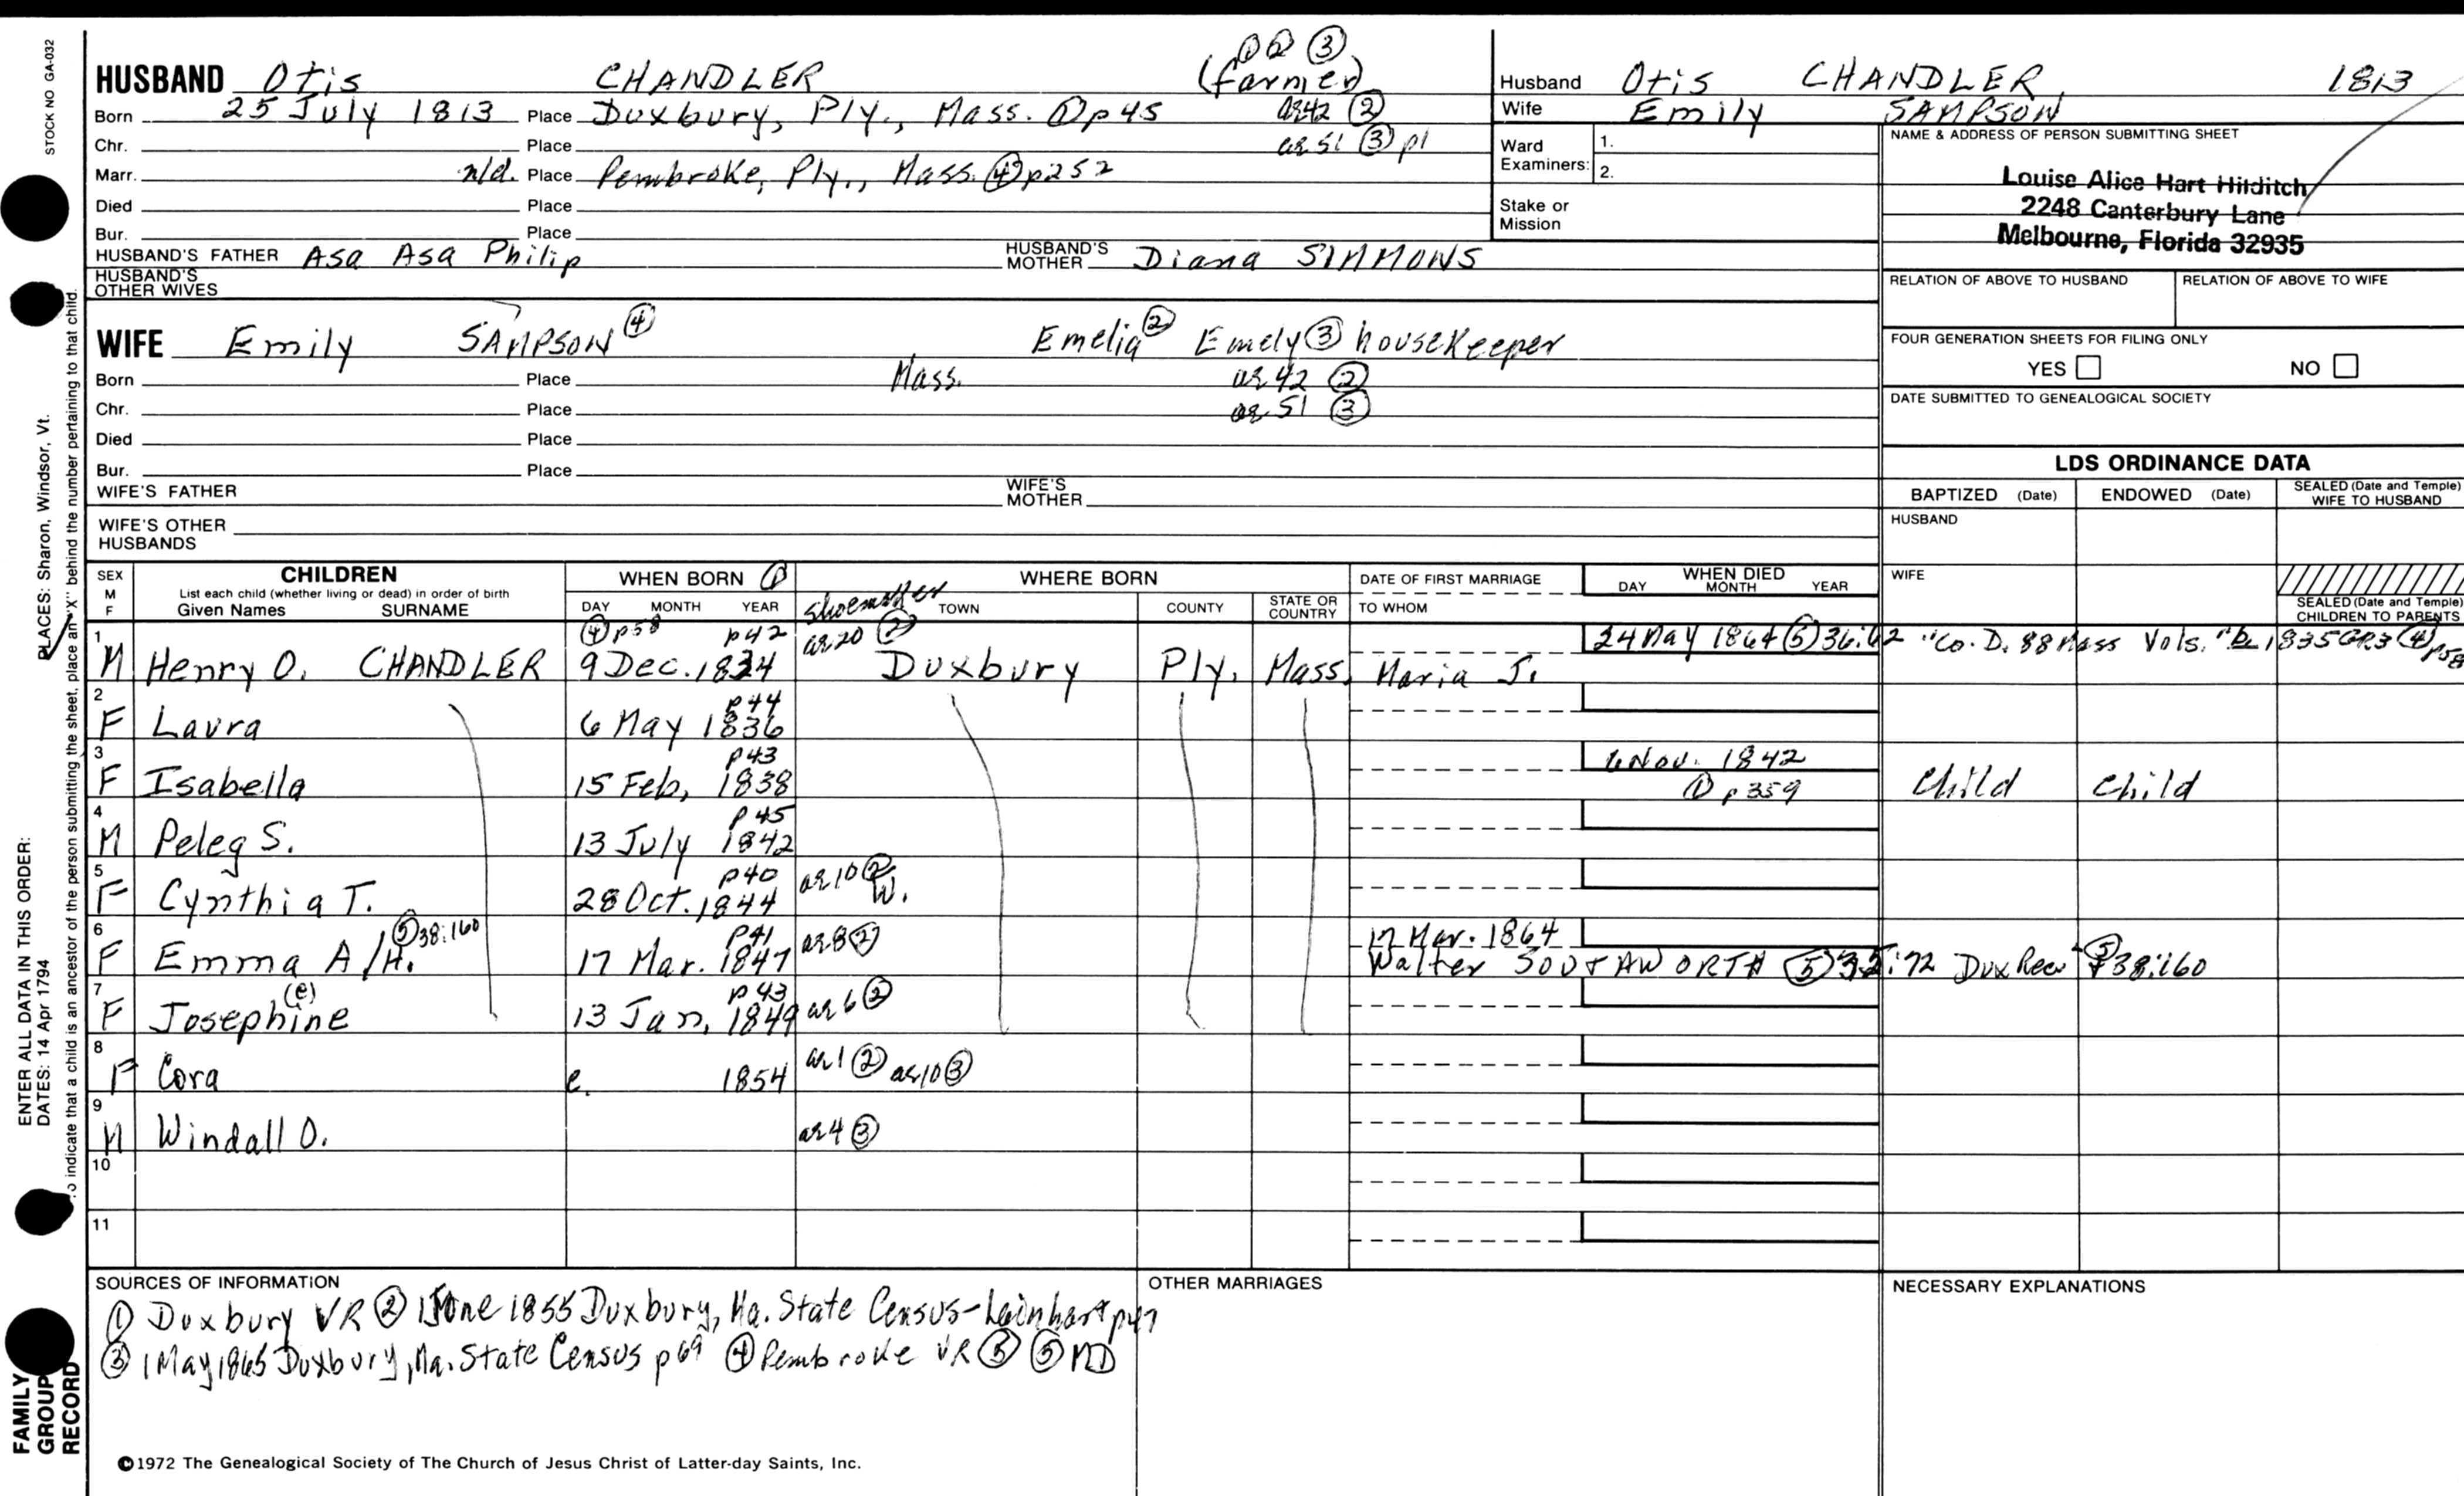 STOCK NO GA-032
①② ③
HUSBAND Otis CHANDLER (farmer)
Born 25 July 1813 Place Duxbury, Ply., Mass. ① p 45 ae 42 ②
Chr. Place ae 51 ③ p1
Marr. n/d. Place Pembroke, Ply., Mass. ④ p252
Died Place
Bur. Place
HUSBAND'S FATHER Asa Asa Philip HUSBAND'S MOTHER Diana SIMMONS
HUSBAND'S OTHER WIVES
WIFE Emily SAMPSON ④ Emelia ② Emely ③ housekeeper
Born Place Mass. ae 42 ②
Chr. Place ae 51 ③
Died Place
Bur. Place
WIFE'S FATHER WIFE'S MOTHER
WIFE'S OTHER HUSBANDS
Husband Otis CHANDLER 1813
Wife Emily SAMPSON
Ward Examiners: 1.
2.
Stake or Mission
NAME & ADDRESS OF PERSON SUBMITTING SHEET
Louise Alice Hart Hilditch
2248 Canterbury Lane
Melbourne, Florida 32935
RELATION OF ABOVE TO HUSBAND RELATION OF ABOVE TO WIFE
FOUR GENERATION SHEETS FOR FILING ONLY
YES NO
DATE SUBMITTED TO GENEALOGICAL SOCIETY
LDS ORDINANCE DATA
BAPTIZED (Date) ENDOWED (Date) SEALED (Date and Temple) WIFE TO HUSBAND
HUSBAND
WIFE
SEALED (Date and Temple) CHILDREN TO PARENTS
SEX M F CHILDREN WHEN BORN ① WHERE BORN DATE OF FIRST MARRIAGE WHEN DIED
List each child (whether living or dead) in order of birth
Given Names SURNAME DAY MONTH YEAR shoemaker TOWN COUNTY STATE OR COUNTRY TO WHOM DAY MONTH YEAR
1 ④ p58 p42 ae 20 ② 24 May 1864 ⑤ 36:62 "Co. D. 88 Mass Vols." b 1835 GR3 ④ p58
M Henry O. CHANDLER 9 Dec. 1834 Duxbury Ply. Mass. Maria J.
2 p44
F Laura 6 May 1836
3 p43 6 Nov. 1842
F Isabella 15 Feb, 1838 ① p 359 Child Child
4 p45
M Peleg S. 13 July 1842
5 p40 ae 10 ②
F Cynthia T. 28 Oct. 1844 W.
6 ⑤ 38:160 p41 ae 8 ② 17 Mar. 1864
F Emma A/H. 17 Mar. 1847 Walter SOUTHWORTH ⑤ :72 Dux Rec ⑤ 38:160
7 (e) p43 ae 6 ②
F Josephine 13 Jan, 1849
8 ae 1 ② ae 10 ③
F Cora c. 1854
9
M Windall O. ae 4 ③
10
11
SOURCES OF INFORMATION OTHER MARRIAGES NECESSARY EXPLANATIONS
① Duxbury VR ② 1 June 1855 Duxbury, Ma. State Census-Leinhart p47
③ 1 May 1865 Duxbury, Ma. State Census p 69 ④ Pembroke VR ⑤ MD
©1972 The Genealogical Society of The Church of Jesus Christ of Latter-day Saints, Inc.
ENTER ALL DATA IN THIS ORDER:
DATES: 14 Apr 1794
PLACES: Sharon, Windsor, Vt.
To indicate that a child is an ancestor of the person submitting the sheet, place an "X" behind the number pertaining to that child.
FAMILY GROUP RECORD